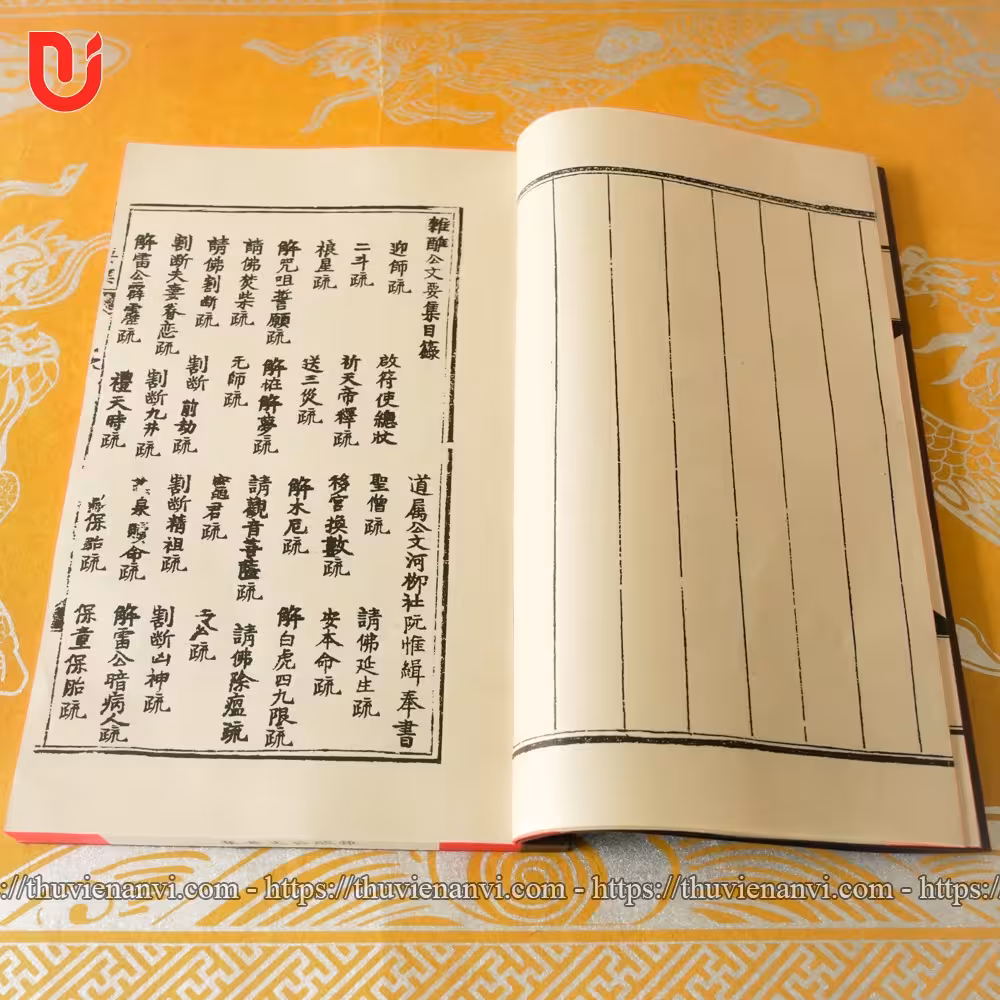 雜醮公文要集目籙 道属公文河柳社阮惟緝奉書
迎師疏 啟符使總狀 聖僧疏 請佛延生疏
二斗疏 祈天帝釋疏 移宮換數疏 安本命疏
禳星疏 送三災疏 解水厄疏 解白虎四九限疏
解咒咀誓願疏 解怪解夢疏 請觀音菩薩疏 請佛除瘟疏
請佛焚柴疏 无師疏 君疏 疏
請佛割断疏 割断前劫疏 割断精祖疏 割断凶神疏
割断夫妻眷恋疏 割断九井疏 泉贖命疏 解雷公暗病人疏
解雷公霹靂疏 禮天時疏 保胎疏 保童保胎疏
://thuvienanvi.com - https://thuvienanvi.com - https://thuvienanvi.com - https://thuvienanvi.com - https://t